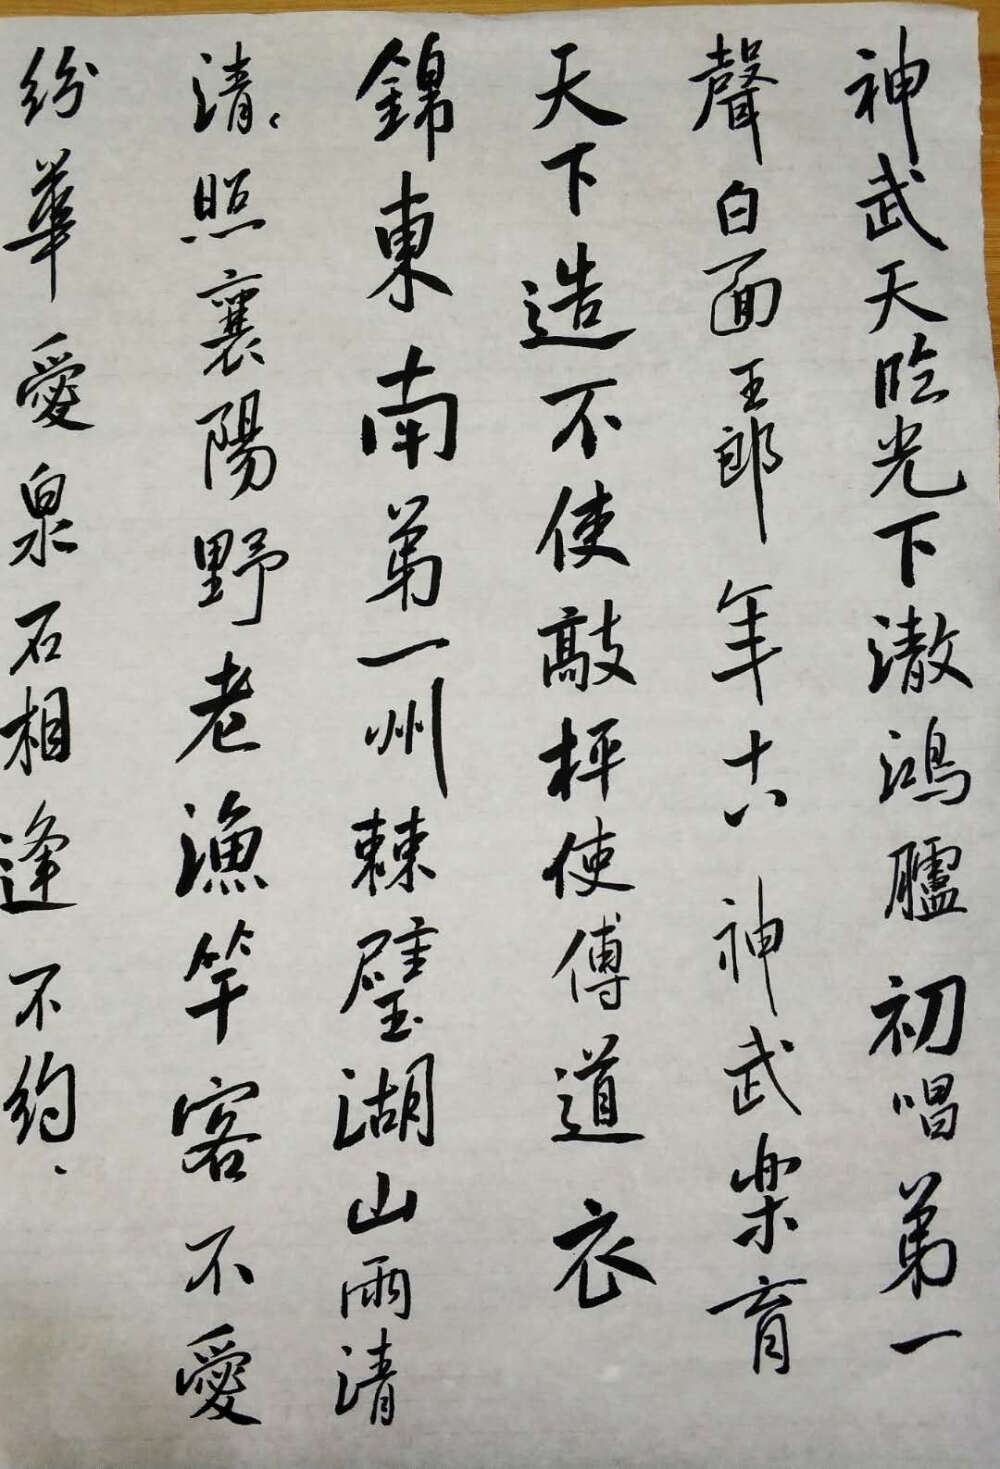 神武天臨光下澈鴻臚初唱弟一
聲白面王郎年十八神武樂育
天下造不使敲枰使傳道衣
錦東南弟一州棘璧湖山雨清
清〻照襄陽野老漁竿客不愛
紛華愛泉石相逢不約、